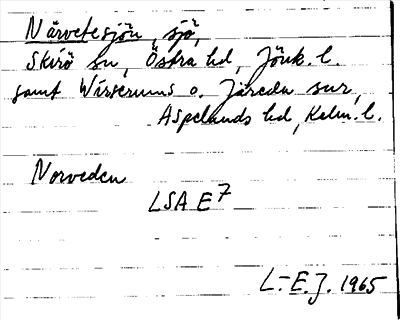 Närvetesjön, sjö,
Skirö sn, Östra hd, Jönk. l.
samt Wirserums o. Järeda snr,
Aspelands hd, Kalm. l.
Norveden
LSA E7
L.-E. J. 1965